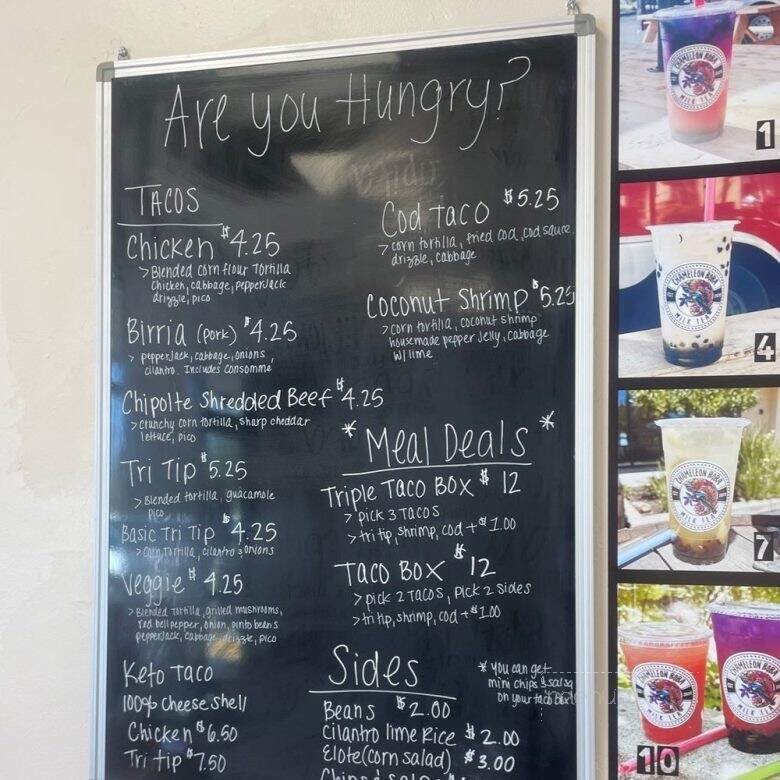 Are you Hungry?
TACOS
Chicken $4.25
> Blended corn flour Tortilla
Chicken, cabbage, pepperJack
drizzle, pico
Birria (pork) $4.25
> pepperJack, cabbage, onions,
cilantro. Includes consomme
Chipolte Shredded Beef $4.25
> crunchy corn tortilla, sharp cheddar
lettuce, pico
Tri Tip $5.25
> Blended tortilla, guacamole
pico
Basic Tri Tip $4.25
> Corn Tortilla, cilantro & onions
Veggie $4.25
> Blended tortilla, grilled mushrooms,
red bell pepper, onion, pinto beans
pepperjack, cabbage, drizzle, pico
Keto Taco
100% cheese shell
Chicken $6.50
Tri tip $7.50
Cod Taco $5.25
> corn tortilla, fried cod, cod sauce
drizzle, cabbage
Coconut Shrimp $5.25
> corn tortilla, coconut shrimp
housemade pepper jelly, cabbage
w/ lime
* Meal Deals *
Triple Taco Box $12
> pick 3 Tacos
> tri tip, shrimp, cod + $1.00
Taco Box $12
> pick 2 tacos, pick 2 sides
> tri tip, shrimp, cod + $1.00
Sides
Beans $2.00
cilantro lime Rice $2.00
Elote (corn salad) $3.00
* you can get
mini chips & salsa
on your taco box
CHAMELEON BOBA
MILK TEA
1
CHAMELEON BOBA
MILK TEA
4
CHAMELEON BOBA
MILK TEA
7
CHAMELEON BOBA
MILK TEA
CHAMELEON BOBA
MILK TEA
10